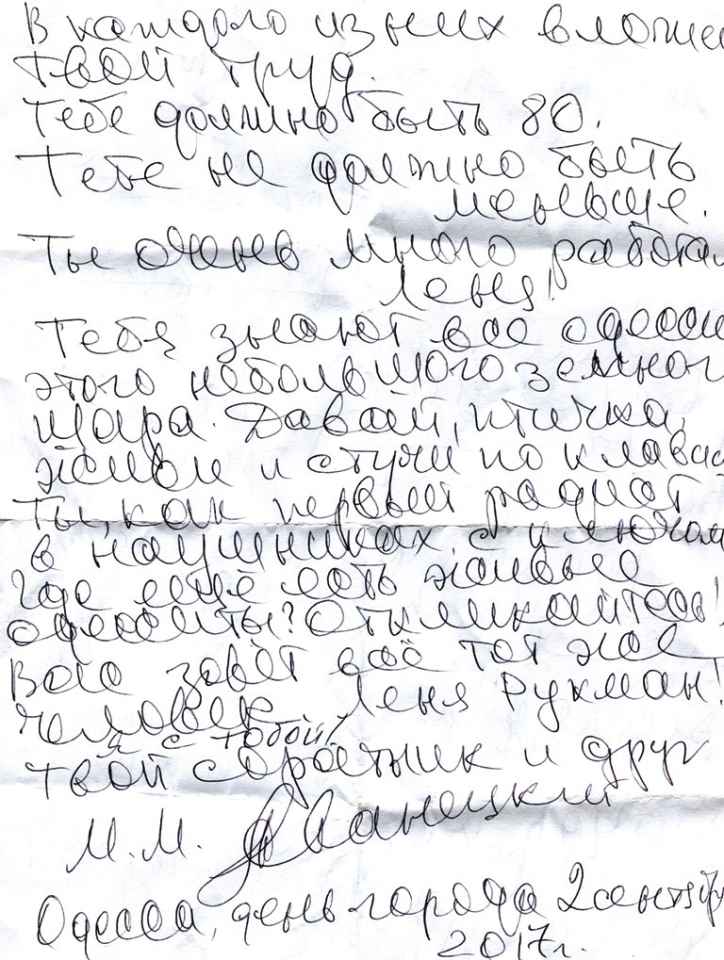 В каждого из них вложен
твой труд.
Тебе должно быть 80.
Тебе не должно быть
меньше.
Ты очень много работа
Леня!
Тебя знают все одесси
этого небольшого земног
шара. Давай, птичка,
живи и стучи по клавис
Ты, как первый радист
в наушниках, с ключом
где ещё есть живые
одесситы? Откликайтесь!
Вас зовёт всё тот же
человек Леня Рукман!
А с тобой
твой соратник и друг
М.М. Жванецкий
Одесса, день города 2 сентяб
2017г.